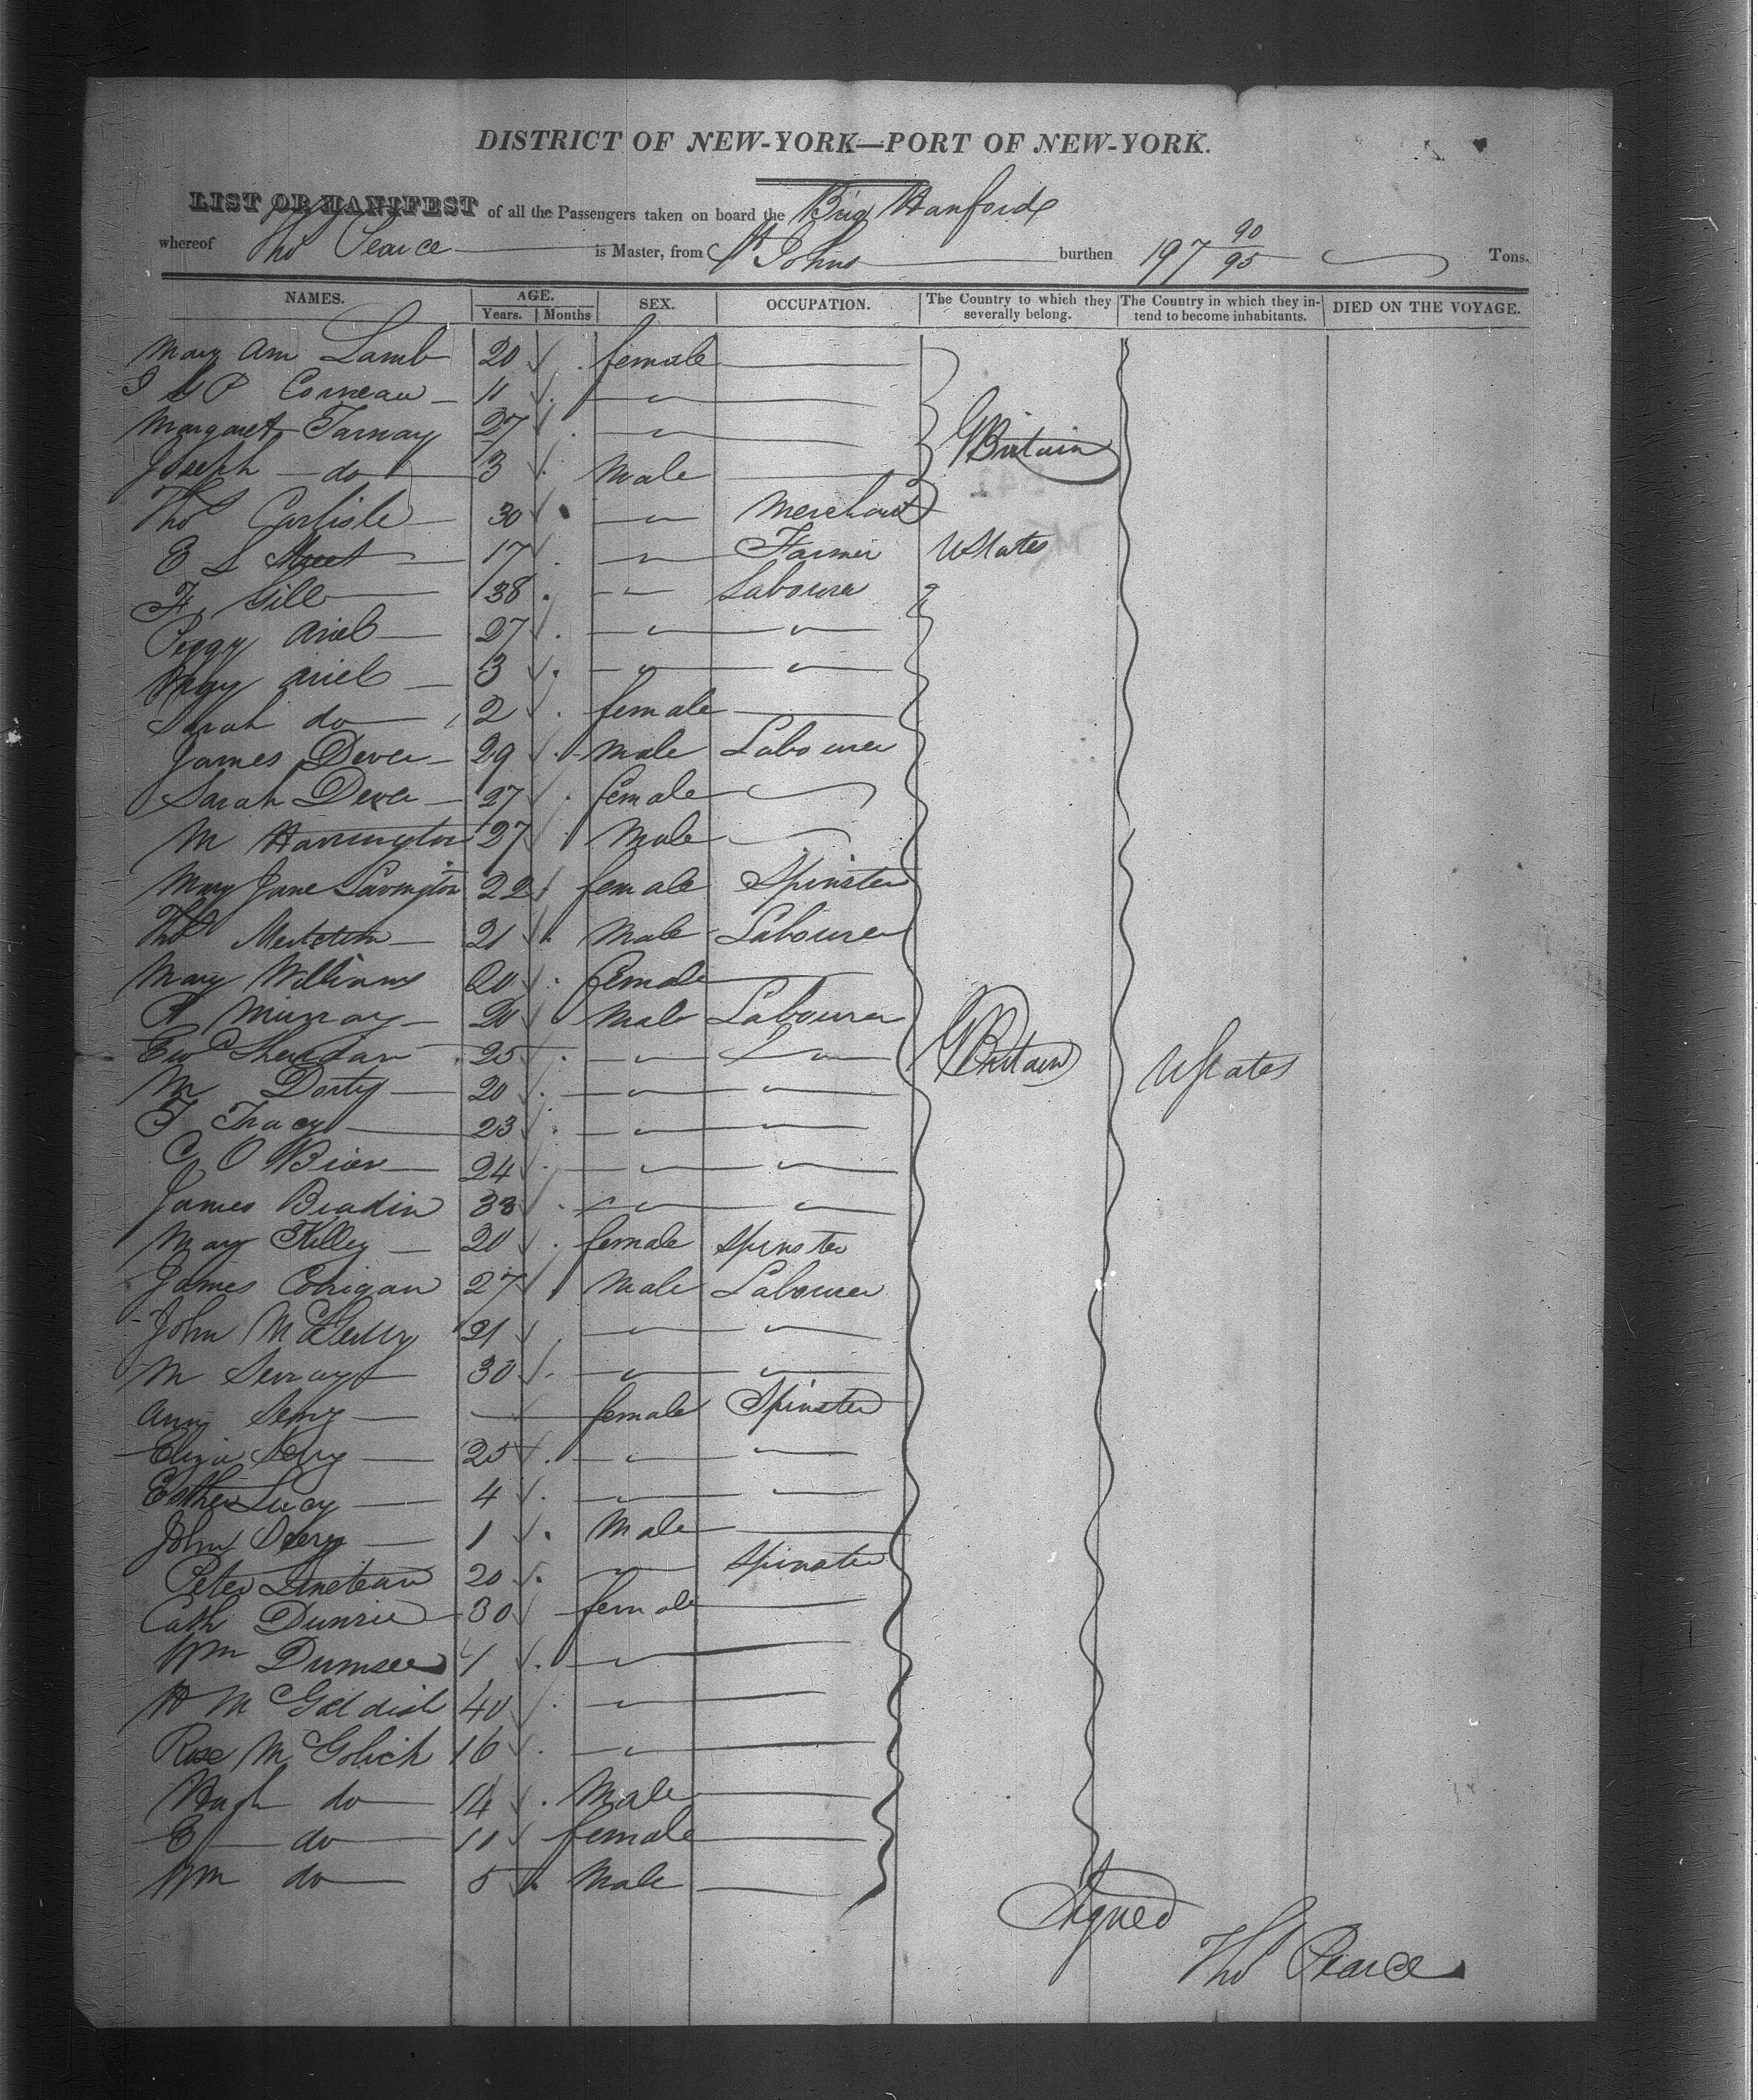 DISTRICT OF NEW-YORK—PORT OF NEW-YORK.
LIST OR MANIFEST of all the Passengers taken on board the Brig Hanford
whereof Tho Pearce is Master, from St Johns burthen 197 90/95 Tons.
NAMES. AGE. SEX. OCCUPATION. The Country to which they severally belong. The Country in which they intend to become inhabitants. DIED ON THE VOYAGE.
Years. Months
Mary Ann Lamb 20 female
Comeau 11
Margaret Tarnay 27 GBritain
Joseph do 3 Male
Tho Carlisle 30 Merchant
E S Street 17 Farmer UStates
F. Gill 38 Labourer
Peggy Ariel 27
Ariel 3
Sarah do 2 female
James Dever 29 Male Labourer
Sarah Dever 27 female
M Harrington 27 Male
Mary Jane Lavington 22 female Spinster
Tho 21 Male Labourer
Mary Williams 20 female
R Murray 20 Male Labourer
Ewd Sheridan 25 GBritain UStates
M Dorty 20
F Tracy 23
C O Brien 24
James Bradin 33
Mary Kelley 20 female Spinster
James Corrigan 27 Male Labourer
John 21
M 30
Ann female Spinster
Eliza 25
Esther Lucy 4
John 1 Male
Peter 20 Spinster
Cath Dunsie 30 female
Wm Dumsee 4
H Mc Goldish 40
Rose Mc Golich 16
Hugh do 14 Male
E do 11 female
Wm do 5 Male
Signed
Tho Pearce